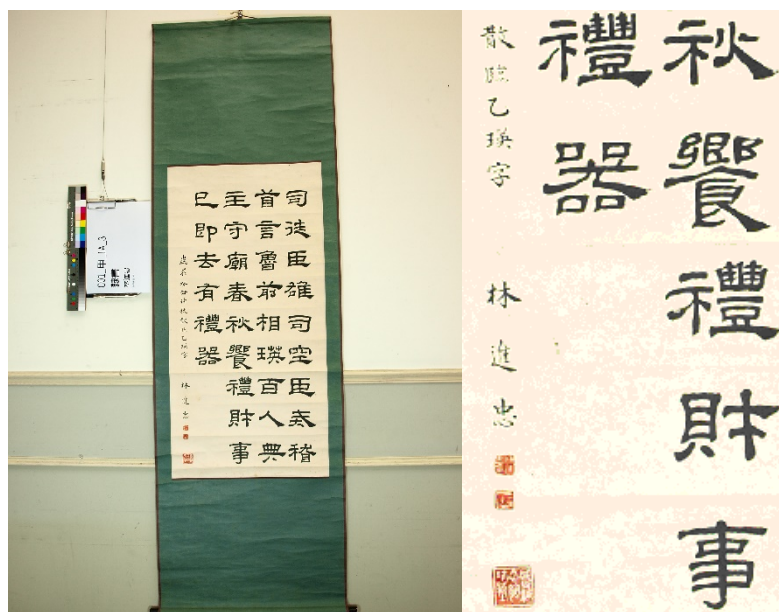 司徒臣雄司空臣戒稽
首言魯前相瑛百人典
主守廟春秋饗禮財事
已即去有禮器
乙瑛字 林進忠
秋饗禮財事
禮器
散臨乙瑛字 林進忠